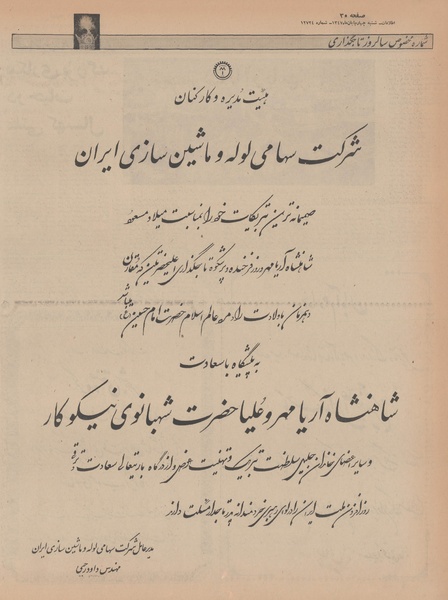 صفحه ۳۵
اطلاعات ـ شنبه چهارم آبان ماه ۱۳۴۷ ـ شماره ۱۲۷۲۴
شماره مخصوص سالروز تاجگذاری
هیئت مدیره و کارکنان
شرکت سهامی لوله و ماشین سازی ایران
صمیمانه ترین تبریکات خود را بمناسبت میلاد مسعود
شاهنشاه آریامهر و روز فرخنده و پرشکوه تاجگذاری اعلیحضرتین که مقارن
و همزمان با ولادت رادمرد عالم اسلام حضرت امام حسین (ع) میباشد
به پیشگاه با سعادت
شاهنشاه آریامهر و علیاحضرت شهبانوی نیکوکار
و سایر اعضای خاندان جلیل سلطنت تبریک و تهنیت عرض و از درگاه باریتعالی سعادت و ترقی
روزافزون ملت ایران را در لوای رهبری خردمندانه پدر تاجدار مسئلت دارند
مدیر عامل شرکت سهامی لوله و ماشین سازی ایران
مهندس داود رجبی